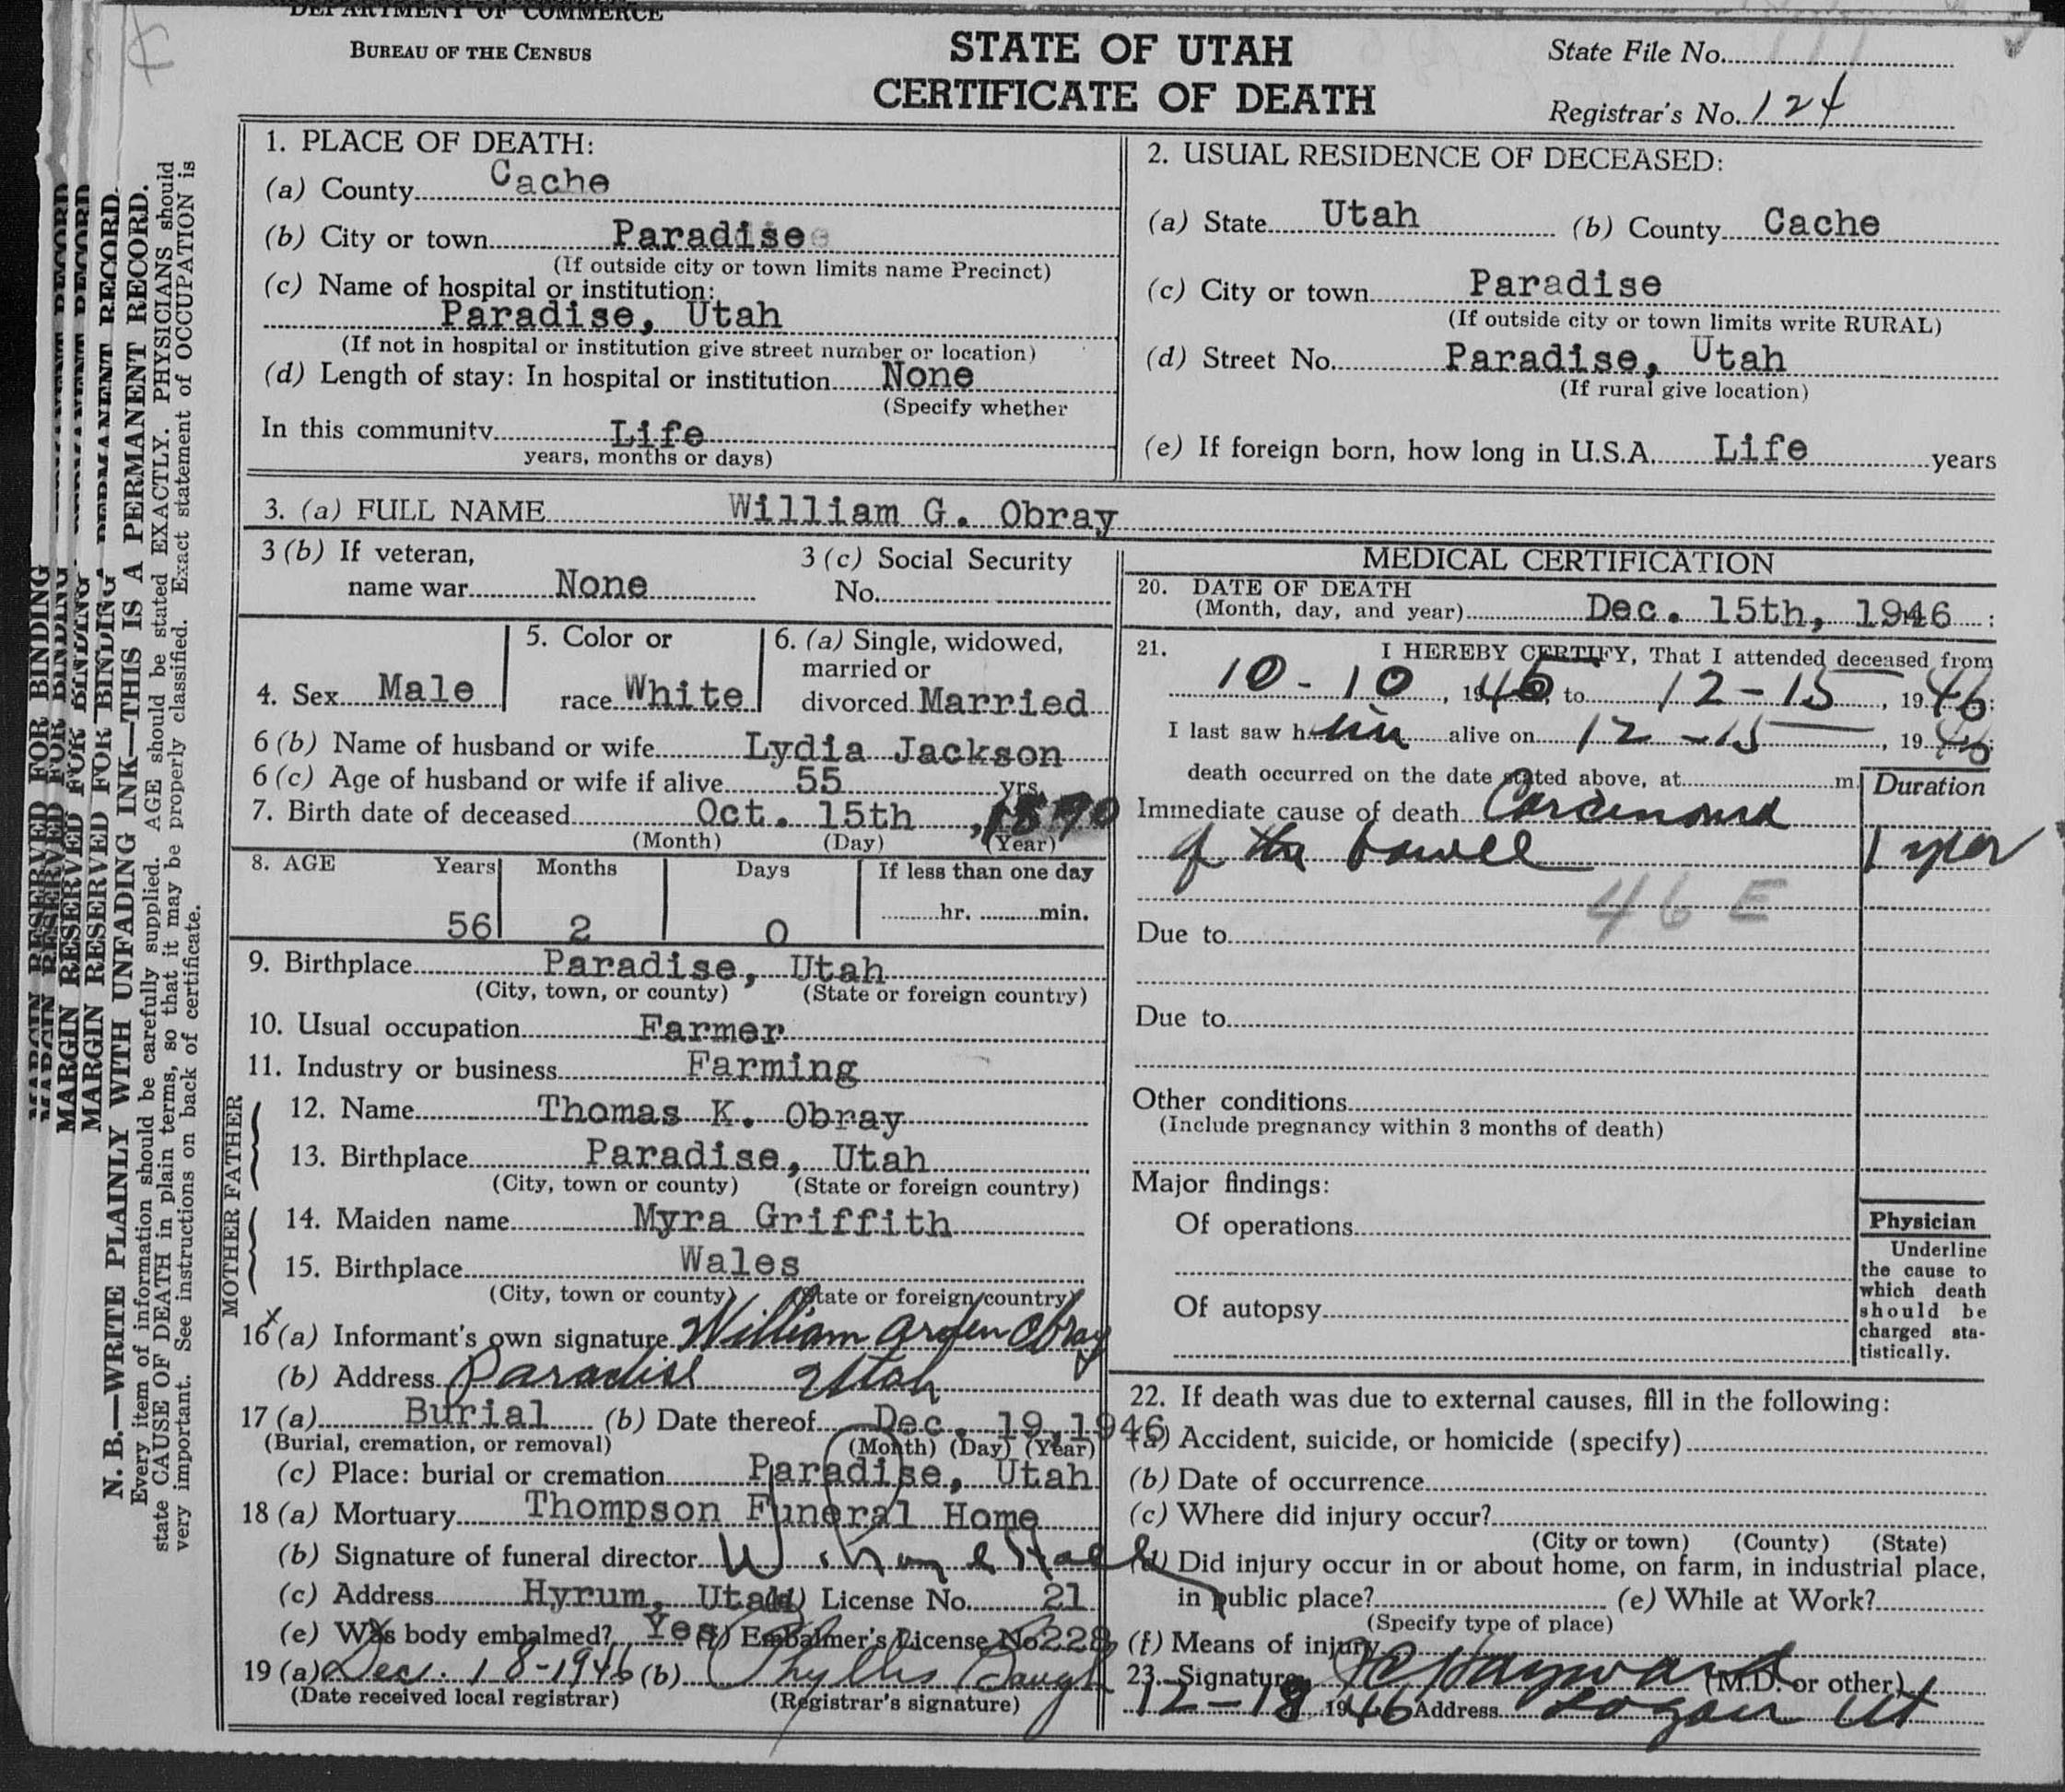 DEPARTMENT OF COMMERCE
BUREAU OF THE CENSUS
STATE OF UTAH
CERTIFICATE OF DEATH
State File No.
Registrar's No. 124
MARGIN RESERVED FOR BINDING
N. B.—WRITE PLAINLY WITH UNFADING INK—THIS IS A PERMANENT RECORD.
Every item of information should be carefully supplied. AGE should be stated EXACTLY. PHYSICIANS should
state CAUSE OF DEATH in plain terms, so that it may be properly classified. Exact statement of OCCUPATION is
very important. See instructions on back of certificate.
1. PLACE OF DEATH:
(a) County Cache
(b) City or town Paradise
(If outside city or town limits name Precinct)
(c) Name of hospital or institution:
Paradise, Utah
(If not in hospital or institution give street number or location)
(d) Length of stay: In hospital or institution None
(Specify whether
In this community Life
years, months or days)
2. USUAL RESIDENCE OF DECEASED:
(a) State Utah (b) County Cache
(c) City or town Paradise
(If outside city or town limits write RURAL)
(d) Street No. Paradise, Utah
(If rural give location)
(e) If foreign born, how long in U.S.A. Life years
3. (a) FULL NAME William G. Obray
3 (b) If veteran,
name war None
3 (c) Social Security
No.
4. Sex Male
5. Color or
race White
6. (a) Single, widowed,
married or
divorced Married
6 (b) Name of husband or wife Lydia Jackson
6 (c) Age of husband or wife if alive 55 yrs.
7. Birth date of deceased Oct. 15th, 1890
(Month) (Day) (Year)
8. AGE Years Months Days If less than one day
56 2 0 hr. min.
9. Birthplace Paradise, Utah
(City, town, or county) (State or foreign country)
10. Usual occupation Farmer
11. Industry or business Farming
FATHER
12. Name Thomas K. Obray
13. Birthplace Paradise, Utah
(City, town or county) (State or foreign country)
MOTHER
14. Maiden name Myra Griffith
15. Birthplace Wales
(City, town or county) (State or foreign country)
16 (a) Informant's own signature William Arden Obray
(b) Address Paradise Utah
17 (a) Burial (b) Date thereof Dec. 19, 1946
(Burial, cremation, or removal) (Month) (Day) (Year)
(c) Place: burial or cremation Paradise, Utah
18 (a) Mortuary Thompson Funeral Home
(b) Signature of funeral director
(c) Address Hyrum, Utah (d) License No. 21
(e) Was body embalmed? Yes (f) Embalmer's License No. 228
19 (a) Dec. 18-1946 (b) Phyllis
(Date received local registrar) (Registrar's signature)
MEDICAL CERTIFICATION
20. DATE OF DEATH
(Month, day, and year) Dec. 15th, 1946
21. I HEREBY CERTIFY, That I attended deceased from
10-10, 1946, to 12-15, 1946;
I last saw him alive on 12-15, 1946;
death occurred on the date stated above, at m.
Duration
Immediate cause of death Carcinoma
of the bowell 1 year
46 E
Due to
Due to
Other conditions
(Include pregnancy within 3 months of death)
Major findings:
Of operations
Of autopsy
Physician
Underline
the cause to
which death
should be
charged sta-
tistically.
22. If death was due to external causes, fill in the following:
(a) Accident, suicide, or homicide (specify)
(b) Date of occurrence
(c) Where did injury occur?
(City or town) (County) (State)
(d) Did injury occur in or about home, on farm, in industrial place,
in public place? (e) While at Work?
(Specify type of place)
(f) Means of injury
23. Signature Hayward (M.D. or other)
12-18 1946 Address Logan Ut